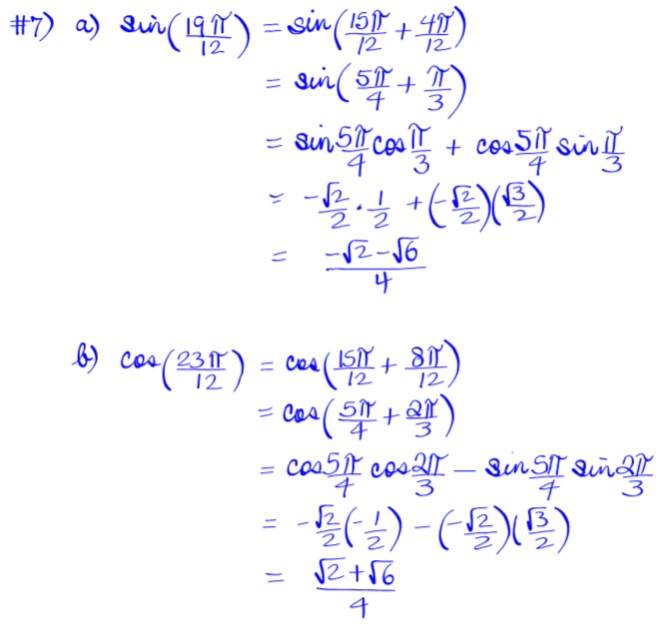 #7) a) sin(19π/12) = sin(15π/12 + 4π/12)
= sin(5π/4 + π/3)
= sin 5π/4 cos π/3 + cos 5π/4 sin π/3
= -√2/2 · 1/2 + (-√2/2)(√3/2)
= (-√2 - √6)/4
b) cos(23π/12) = cos(15π/12 + 8π/12)
= cos(5π/4 + 2π/3)
= cos 5π/4 cos 2π/3 - sin 5π/4 sin 2π/3
= -√2/2(-1/2) - (-√2/2)(√3/2)
= (√2 + √6)/4